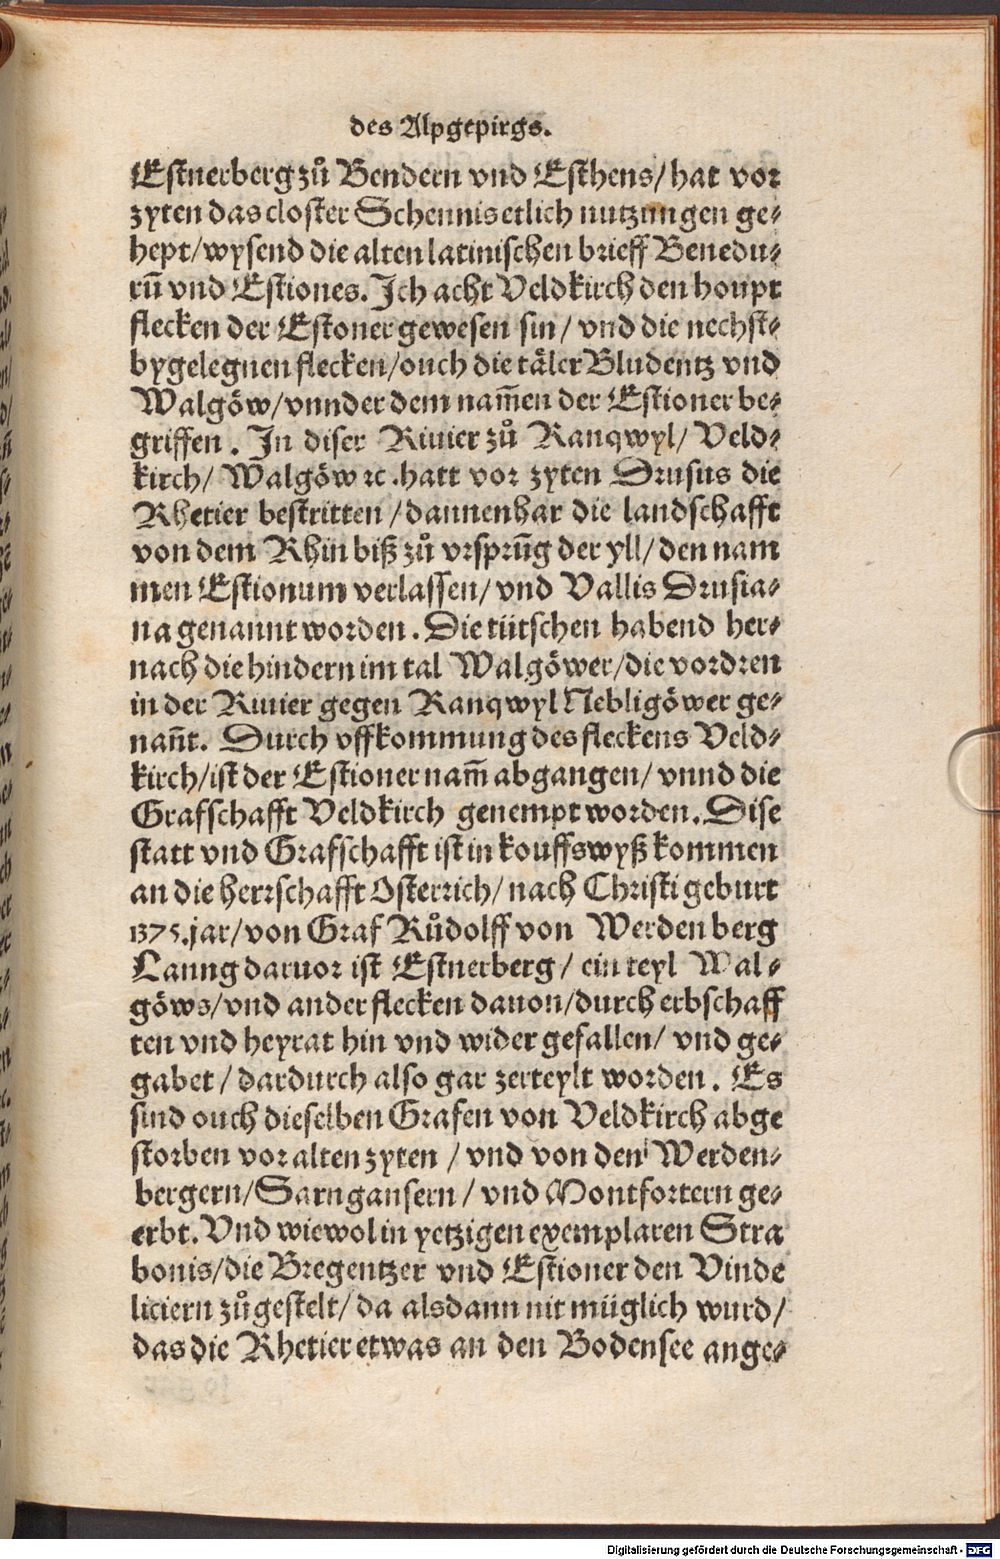 des Alpgepirgs.
Estnerberg zů Bendern vnd Esthens/ hat vor
zyten das closter Schennis etlich nutzungen ge⸗
hept/ wysend die alten latinischen brieff Benedu⸗
rū vnd Estiones. Ich acht Veldkirch den houpt
flecken der Estoner gewesen sin/ vnd die nechst⸗
bygelegnen flecken/ ouch die täler Bludentz vnd
Walgöw/ vnnder dem nam̄en der Estioner be⸗
griffen. In diser Riuier zů Ranqwyl/ Veld⸗
kirch/ Walgöw ꝛc. hatt vor zyten Drusus die
Rhetier bestritten/ dannenhar die landschafft
von dem Rhin biß zů vrsprūg der yll/ den nam
men Estionum verlassen/ vnd Vallis Drusia⸗
na genannt worden. Die tütschen habend her⸗
nach die hindern im tal Walgöwer/ die vordren
in der Riuier gegen Ranqwyl Nebligöwer ge⸗
nañt. Durch vffkommung des fleckens Veld⸗
kirch/ ist der Estioner nam̄ abgangen/ vnnd die
Grafschafft Veldkirch genempt worden. Dise
statt vnd Grafschafft ist in kouffswyß kommen
an die herrschafft Osterrich/ nach Christi geburt
1375. jar/ von Graf Růdolff von Werdenberg
Lanng daruor ist Estnerberg/ ein teyl Wal⸗
göws/ vnd ander flecken dauon/ durch erbschaff
ten vnd heyrat hin vnd wider gefallen/ vnd ge⸗
gabet/ dardurch also gar zerteylt worden. Es
sind ouch dieselben Grafen von Veldkirch abge
storben vor alten zyten / vnd von den Werden⸗
bergern/ Sarngansern/ vnd Montfortern ge⸗
erbt. Vnd wiewol in yetzigen exemplaren Stra
bonis/ die Bregentzer vnd Estioner den Vinde
liciern zůgestelt/ da alsdann nit müglich wurd/
das die Rhetier etwas an den Bodensee ange⸗
Digitalisierung gefördert durch die Deutsche Forschungsgemeinschaft - DFG